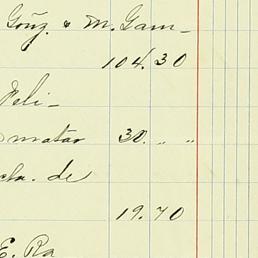 Goñz. & M. Gam-
104.30
Feli-
matas 30. " "
cha. de
19.70
E. Ra